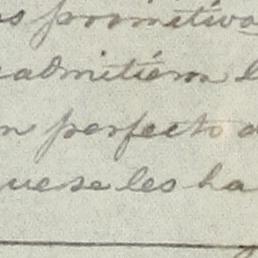 os primitivos
admitiém l
n perfecto a
que se les ha